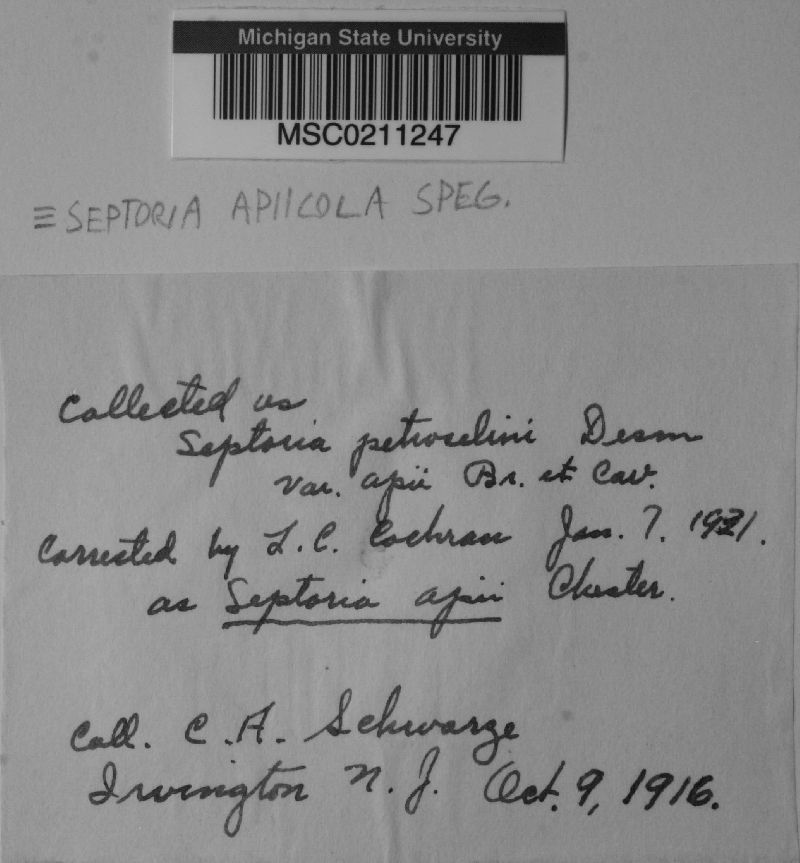 Michigan State University
MSC0211247
≡ SEPTORIA APIICOLA SPEG.
Collected as
Septoria petroselini Desm
var. apii Br. et Cav.
Corrected by L. C. Cochran Jan. 7.
as Septoria apii Chester.
Coll. C. A. Schwarze
Irvington N. J. Oct. 9, 1916.